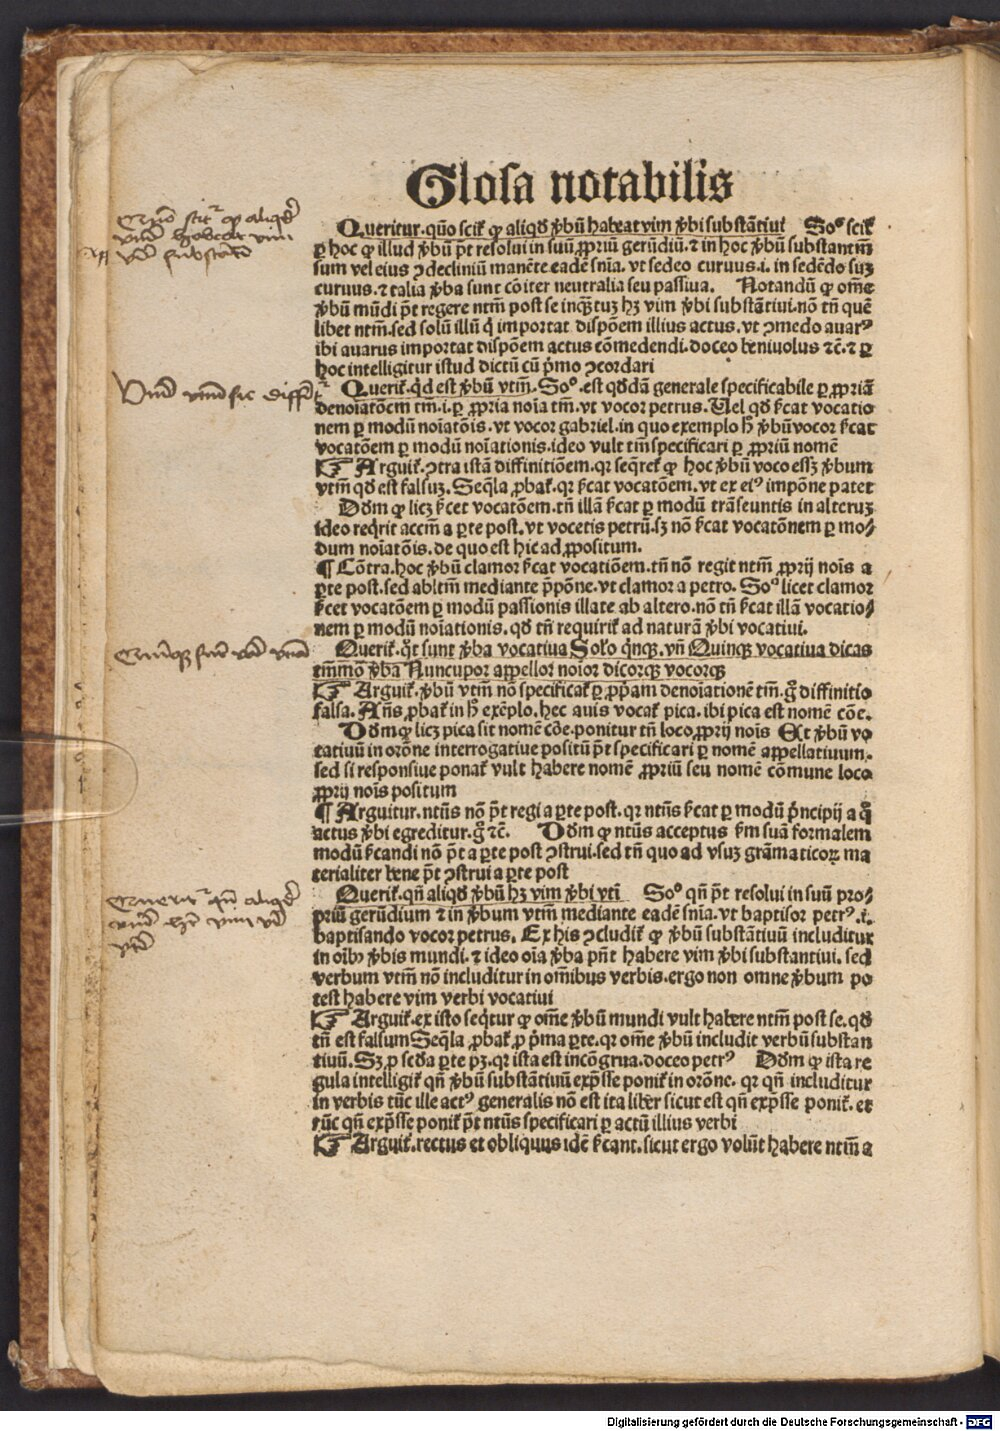 Glosa notabilis
Queritur.quo᷑ scit᷑ ꝙ aliqd̄ v̾bū habeat vim v̾bi substātiui Soº scit᷑
ꝑ hoc ꝙ illud v̾bū pt̄ resolui in suū ꝓpriū gerūdiū.⁊ in hoc v̾bū substantiuū
sum vel eius ꝯdecliniū manēte eadē sn̄ia. vt sedeo curuus.i. in sedēdo suꝫ
curuus.⁊ talia v̾ba sunt cōiter neutralia seu passiua. Notandū ꝙ om̄e
v̾bū mūdi pt̄ regere ntm̄ post se inq̄ꝫtuꝫ hꝫ vim v̾bi substātiui.nō tn̄ quē
libet ntm̄.sed solū illū q̇ importat dispōem illius actus.vt ꝯmedo auarꝰ
ibi auarus importat dispōem actus cōmedendi.doceo beniuolus ⁊c̄.⁊ ꝑ
hoc intelligitur istud dictū cū p̄mo ꝯcordari
Querit᷑.qd̄ est v̾bū vtm̄. Soº.est qd̄dā generale specificabile ꝑ ꝓpriā
denoiatōem tm̄.i.ꝑ ꝓpria noīa tm̄.vt vocor petrus. Uel qd̄ s̄cat vocatio
nem ꝑ modū noīatōis.vt vocor gabriel.in quo exemplo h̄ v̾bū vocor s̄cat
vocatōem ꝑ modū noīationis.ideo vult tm̄ specificari ꝑ ꝓpriū nomē
☞ Arguit᷑.ꝯtra istā diffinitiōem.qꝛ seq̄ret᷑ ꝙ hoc v̾bū voco essꝫ v̾bum
vtm̄ qd̄ est falsuꝫ. Seq̄la ꝓbat᷑.qꝛ s̄cat vocatōem.vt ex eiꝰ impōne patet
Dd̄m ꝙ licꝫ s̄cet vocatōem.tn̄ illā s̄cat ꝑ modū trāseuntis in alteruꝫ
ideo reqrit accm̄ a ꝑte post.vt vocetis petrū.sꝫ nō s̄cat vocatōnem ꝑ mo⸗
dum noīatōis.de quo est hic ad ꝓpositum.
¶ Cōtra.hoc v̾bū clamor s̄cat vocatiōem.tn̄ nō regit ntm̄ ꝓprij nois a
ꝑte post.sed abltm̄ mediante p̄pōne.vt clamor a petro. Soº licet clamor
s̄cet vocatōem ꝑ modū passionis illate ab altero.nō tn̄ s̄cat illā vocatio⸗
nem ꝑ modū noīationis.qd̄ tn̄ requirit᷑ ad naturā v̾bi vocatiui.
Querit᷑.q̇t sunt v̾ba vocatiua Solo q̇nqꝫ.vn̄ Quinqꝫ vocatiua dicas
tm̄mō v̾ba Nuncupor appellor noior dicorqꝫ vocorqꝫ
☞ Arguit᷑.v̾bū vtm̄ nō specificat᷑ ꝑ ꝓpam denoiationē tm̄.g̊ diffinitio
falsa. An̄s ꝓbat᷑ in h̄ exēplo.hec auis vocat᷑ pica.ibi pica est nomē cōe.
Dd̄m ꝙ licꝫ pica sit nomē cōe.ponitur tn̄ loco ꝓprij nois Et v̾bū vo
catiuū in orōne interrogatiue positū pt̄ specificari ꝑ nomē appellatiuum.
sed si responsiue ponat᷑ vult habere nomē ꝓpriū seu nomē cōmune loco
ꝓprij nois positum
¶ Arguitur.ntūs nō pt̄ regi a ꝑte post.qꝛ ntūs s̄cat ꝑ modū p̄ncipij a q̊
actus v̾bi egreditur.g̊ ⁊c̄. Dd̄m ꝙ ntūs acceptus s̄m suā formalem
modū s̄candi nō pt̄ a ꝑte post ꝯstrui.sed tn̄ quo ad vsuꝫ grāmaticoꝝ ma
terialiter bene pt̄ ꝯstrui a ꝑte post
Querit᷑.qn̄ aliqd̄ v̾bū hꝫ vim v̾bi vti Soº qn̄ pt̄ resolui in suū pro⸗
priū gerūdium ⁊ in v̾bum vtm̄ mediante eadē sn̄ia.vt baptisor petrꝰ.i.
baptisando vocor petrus. Ex his ꝯcludit᷑ ꝙ v̾bū substātiuū includitur
in oībꝰ v̾bis mundi.⁊ ideo oīa v̾ba pn̄t habere vim v̾bi substantiui. sed
verbum vtm̄ nō includitur in om̄ibus verbis.ergo non omne v̾bum po
test habere vim verbi vocatiui
☞ Arguit᷑.ex isto seq̇tur ꝙ om̄e v̾bū mundi vult habere ntm̄ post se.qd̄
tn̄ est falsum Seq̄la ꝓbat᷑ ꝓ p̄ma ꝑte.qꝛ om̄e v̾bū includit verbū substan
tiuū. Sꝫ ꝓ sc̄da ꝑte pꝫ.qꝛ ista est incōgrua.doceo petrꝰ Dd̄m ꝙ ista re
gula intelligit᷑ qn̄ v̾bū substātiuū exp̄sse ponit᷑ in orōne. qꝛ qn̄ includitur
in verbis tūc ille actꝰ generalis nō est ita liber sicut est qn̄ exp̄sse ponit᷑.et
tūc qn̄ exp̄sse ponit᷑ pt̄ ntūs specificari ꝑ actū illius verbi
☞ Arguit᷑.rectus et obliquus idē s̄cant.sicut ergo volūt habere ntm̄ a
Digitalisierung gefördert durch die Deutsche Forschungsgemeinschaft - DFG